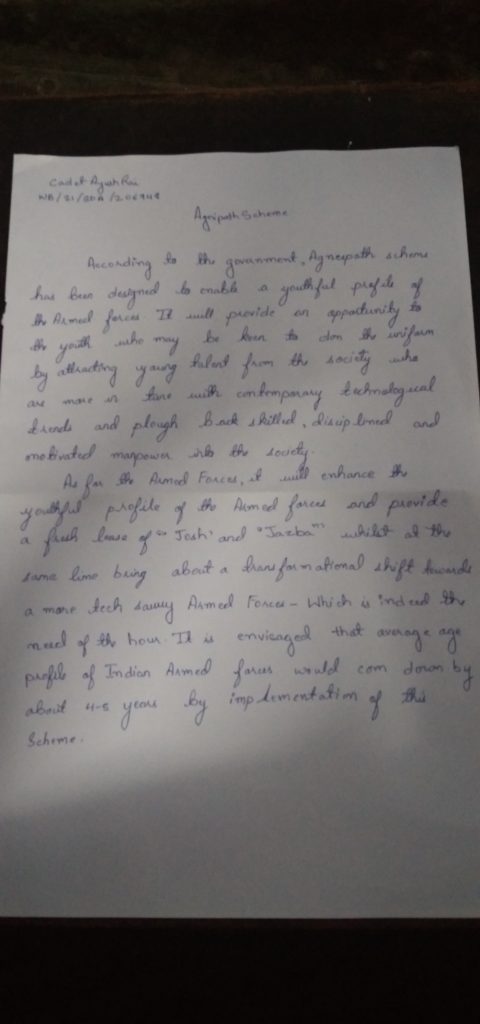 Cadet Ayush Rai
WB/21/SDA/206949
Agnipath Scheme
According to the government, Agneepath scheme
has been designed to enable a youthful profile of
the Armed forces. It will provide an oppartunity to
the youth who may be keen to don the uniform
by attracting young talent from the society who
are more in tune with contemporary technological
trends and plough back skilled, disciplined and
motivated manpower into the society.
As for the Armed Forces, it will enhance the
youthful profile of the Armed forces and provide
a fresh lease of "Josh' and "Jazba" whilst at the
same time bring about a transformational shift towards
a more tech savvy Armed Forces - Which is indeed the
need of the hour. It is envisaged that average age
profile of Indian Armed forces would com down by
about 4-5 years by implementation of this
Scheme.